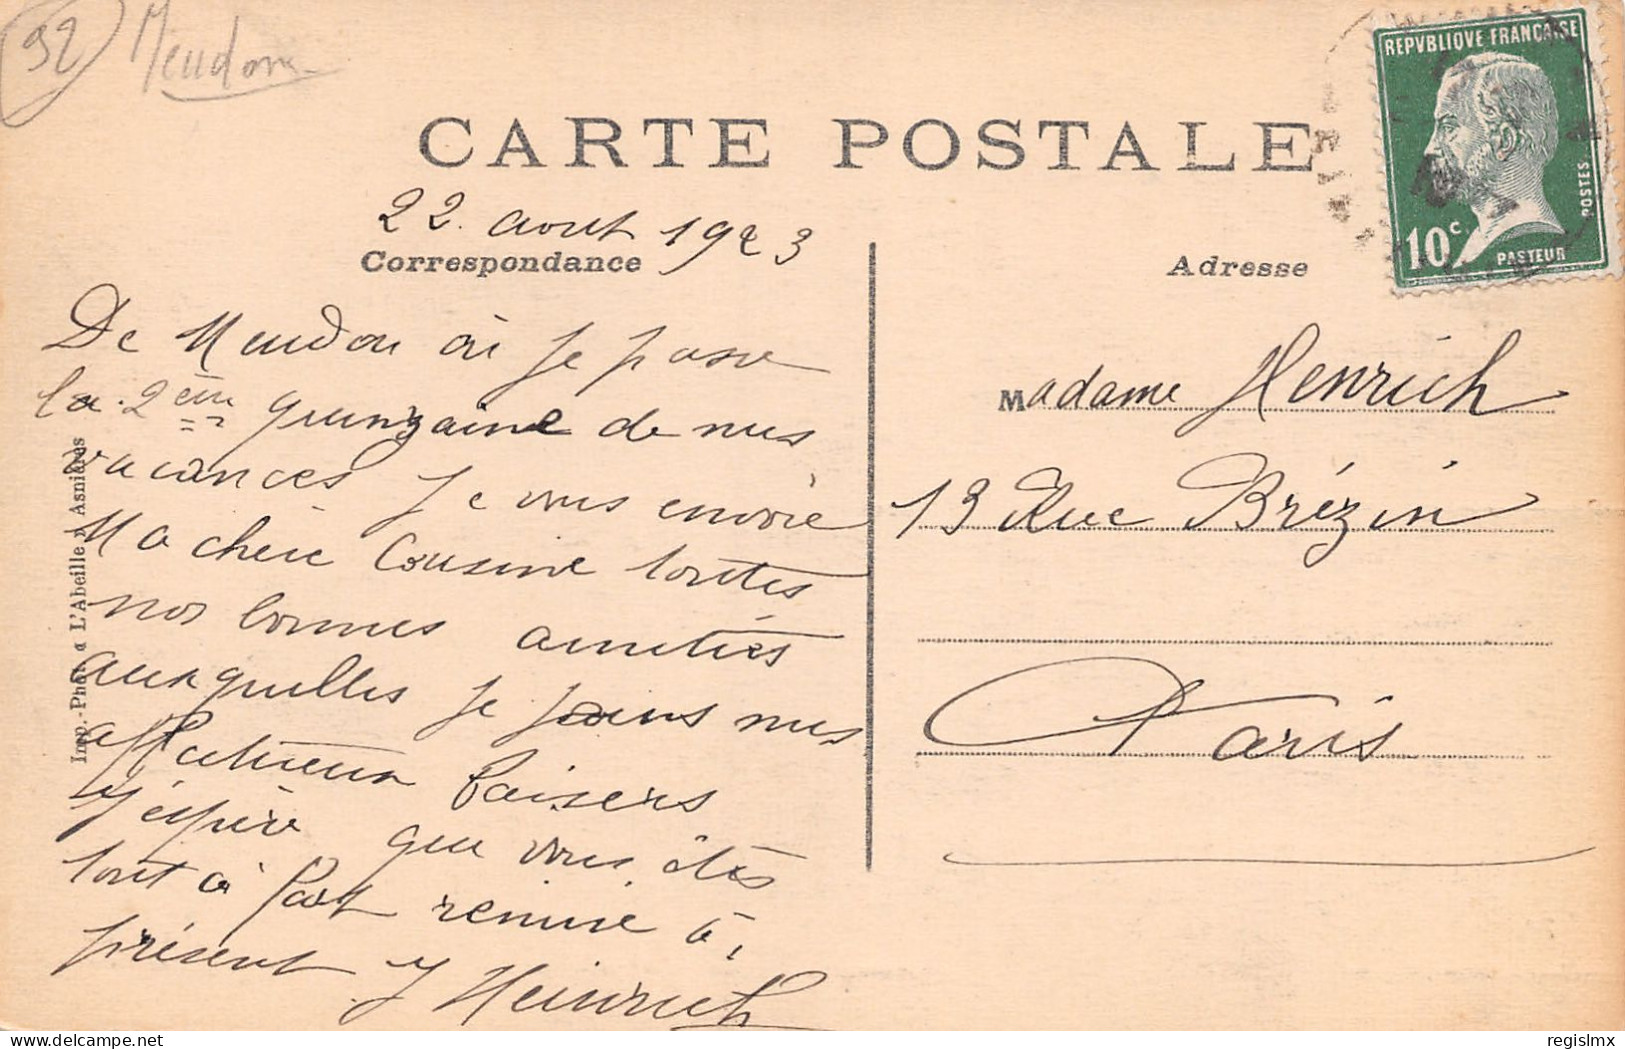 92
Meudon
CARTE POSTALE
REPVBLIQVE FRANÇAISE
POSTES
10c
PASTEUR
22 aout 1923
Correspondance
De Meudon où je passe
la 2ème quinzaine de mes
vacances je vous envoie
Ma chère Cousine toutes
nos bonnes amitiés
auxquelles je joins mes
affectueux baisers
J'espère que vous êtes
tout à fait remise à
présent J Heinrich
Adresse
Madame Henrich
13 Rue Brézin
Paris
Imp.-Phot « L'Abeille » Asnières
regislmx